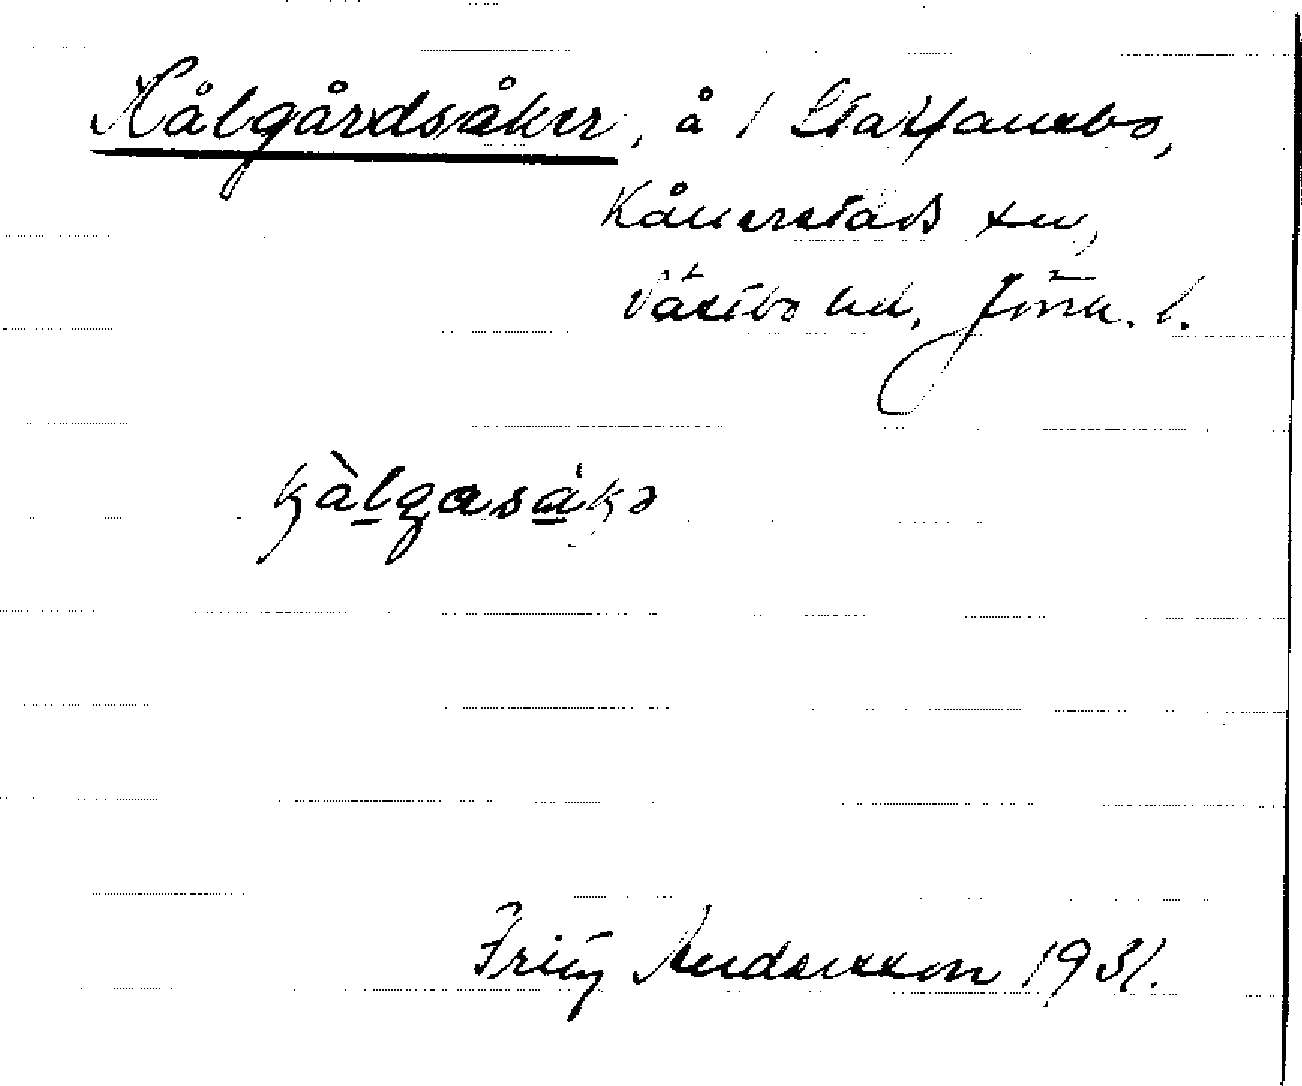 Kålgårdsåker, å 1 Staffansbo,
Kållerstads sn,
Västbo hd, Jönk. l.
kålgasåkə
Fritz Andersson 1931.